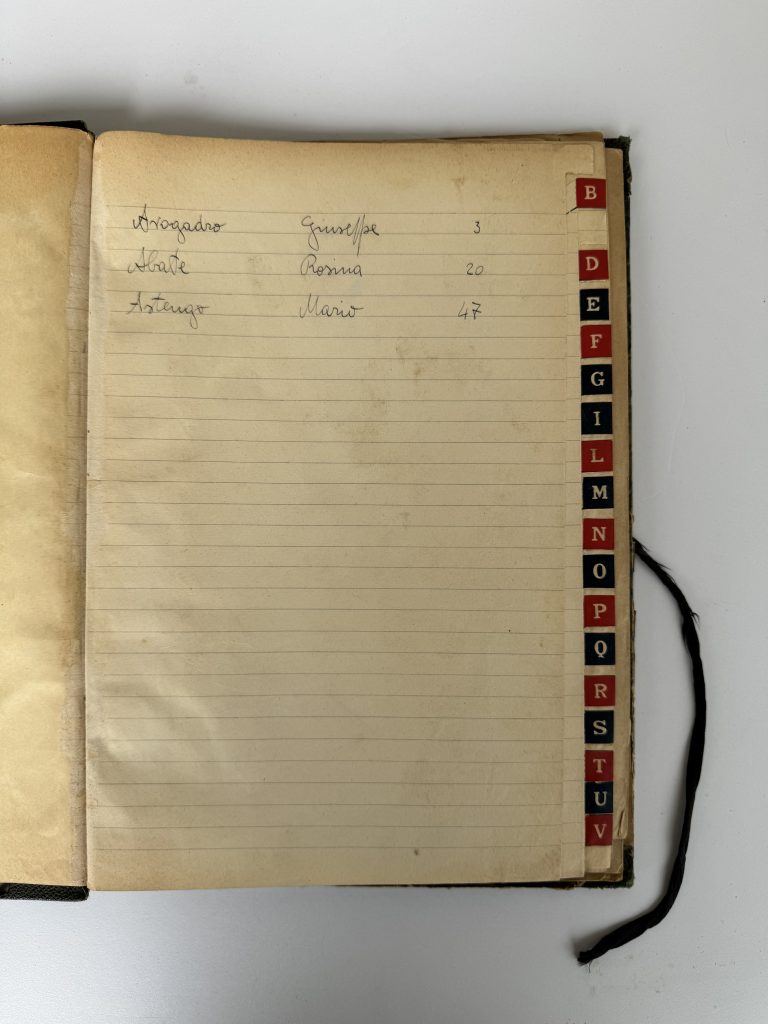 Avogadro Giuseppe 3
Abate Rosina 20
Astengo Mario 47
B
D
E
F
G
I
L
M
N
O
P
Q
R
S
T
U
V